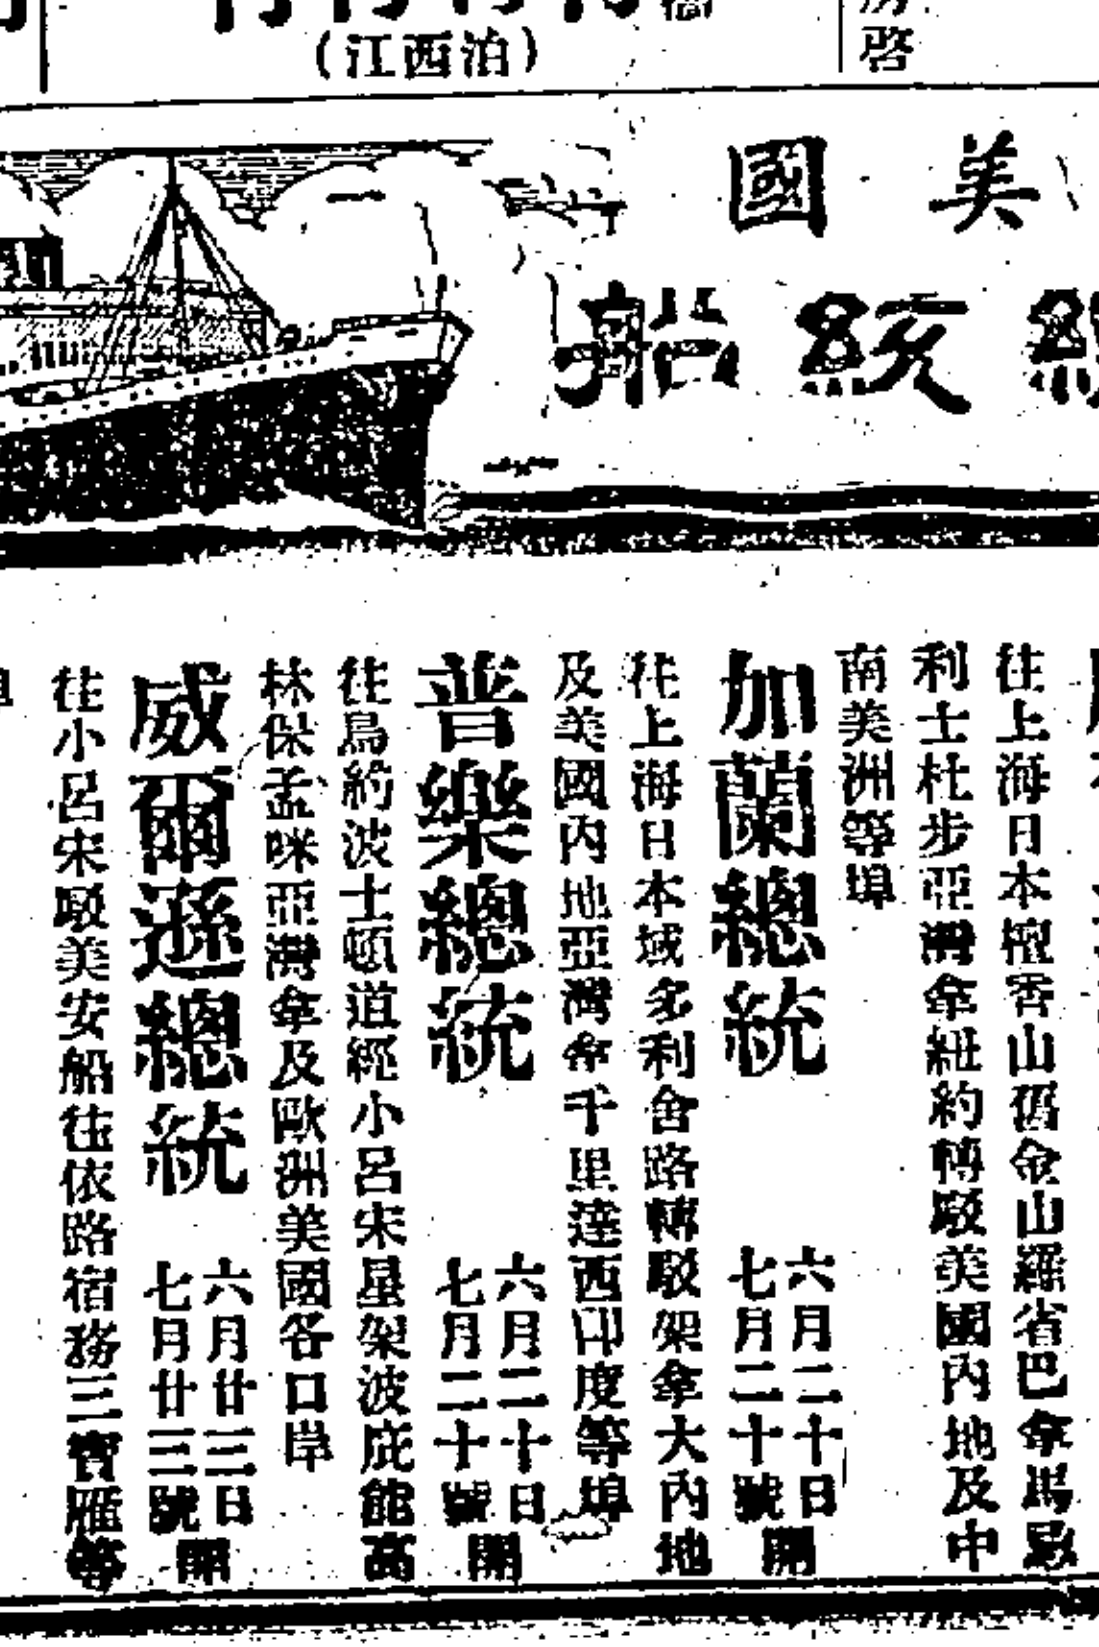 (泊西江)
啓
美國
總統船
往上海日本檀香山舊金山羅省巴拿馬忌
利士杜步亞灣拿紐約轉駁美國內地及中
南美洲等埠
加蘭總統
六月二十日
七月二十號開
往上海日本域多利舍路轉駁架拿大內地
及美國內地亞灣拿千里達西印度等埠
普樂總統
六月二十日
七月二十號開
往鳥約波士頓道經小呂宋星架波庇能高
林保孟咪亞灣拿及歐洲美國各口岸
威爾遜總統
六月廿三日
七月廿三號開
往小呂宋駁美安船往依路宿務三寶雁等